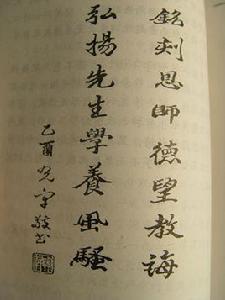 銘刻恩師德望教誨
弘揚先生學養風騷
乙酉 敬書